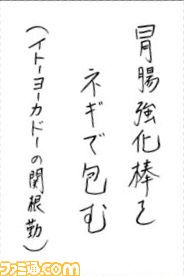 胃腸強化棒を
ネギで包む
（イトーヨーカドーの関根勤）
ファミ通.com